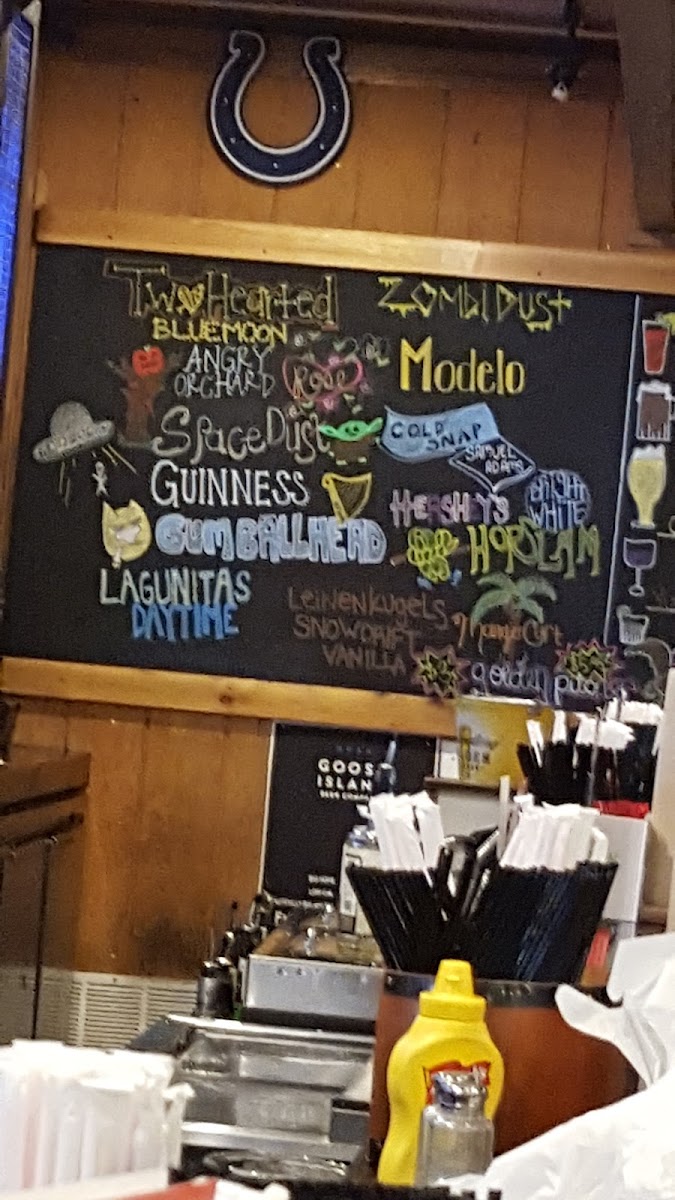 Two Hearted
ZOMBI DUST
BLUE MOON
ANGRY
ORCHARD
Rosé
Modelo
Space Dust
COLD
SNAP
SAMUEL
ADAMS
GUINNESS
HERSHEY'S
BRIGHT
WHITE
GUMBALLHEAD
HOPSLAM
LAGUNITAS
DAYTIME
LeiNeNkugels
SNOWDRIFT
VANILLA
Mango Cart
golden
GOOS
ISLAN